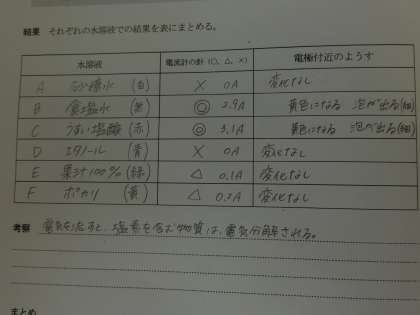 結果 それぞれの水溶液での結果を表にまとめる。
水溶液 電流計の針 (○, △, ×) 電極付近のようす
A 砂糖水 (白) × 0A 変化なし
B 食塩水 (黒) ◎ 2.9A 黄色になる 泡が出る(細)
C うすい塩酸 (赤) ◎ 3.1A 黄色になる 泡が出る(細)
D エタノール (青) × 0A 変化なし
E 果汁100% (緑) △ 0.1A 変化なし
F ポカリ (黄) △ 0.2A 変化なし
考察 電気を流すと、塩素を含む物質は、電気分解される。
まとめ